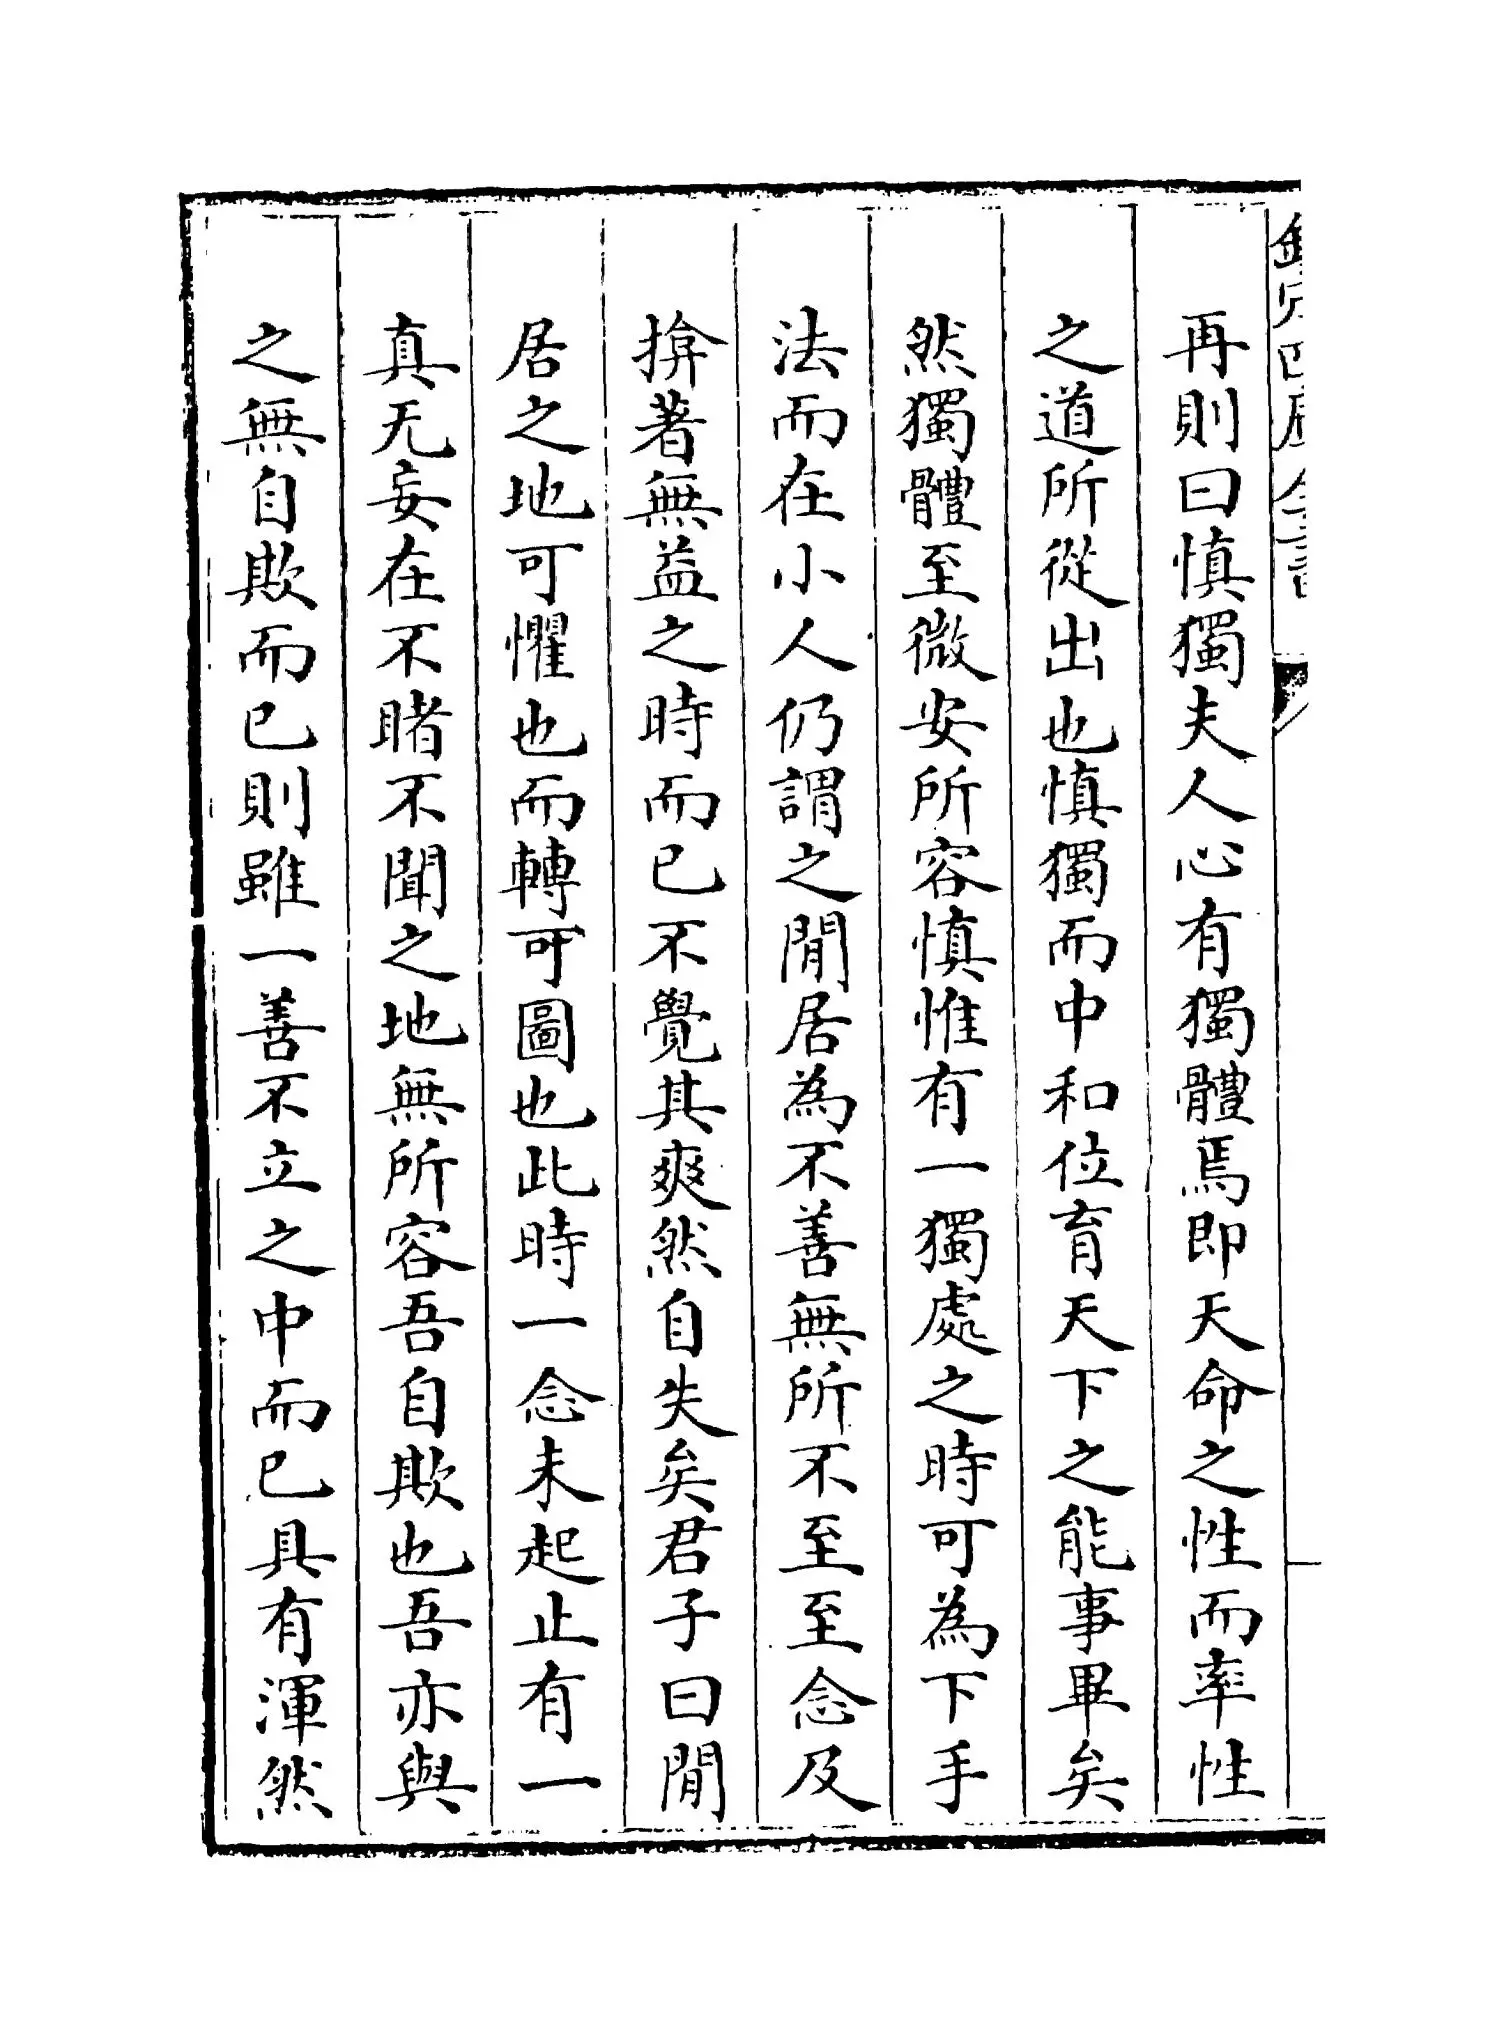 欽定四庫全書
再則曰慎獨夫人心有獨體焉即天命之性而率性
之道所從出也慎獨而中和位育天下之能事畢矣
然獨體至微安所容慎惟有一獨處之時可為下手
法而在小人仍謂之閒居為不善無所不至至念及
揜著無益之時而已不覺其爽然自失矣君子曰閒
居之地可懼也而轉可圖也此時一念未起止有一
真无妄在不睹不聞之地無所容吾自欺也吾亦與
之無自欺而已則雖一善不立之中而已具有渾然